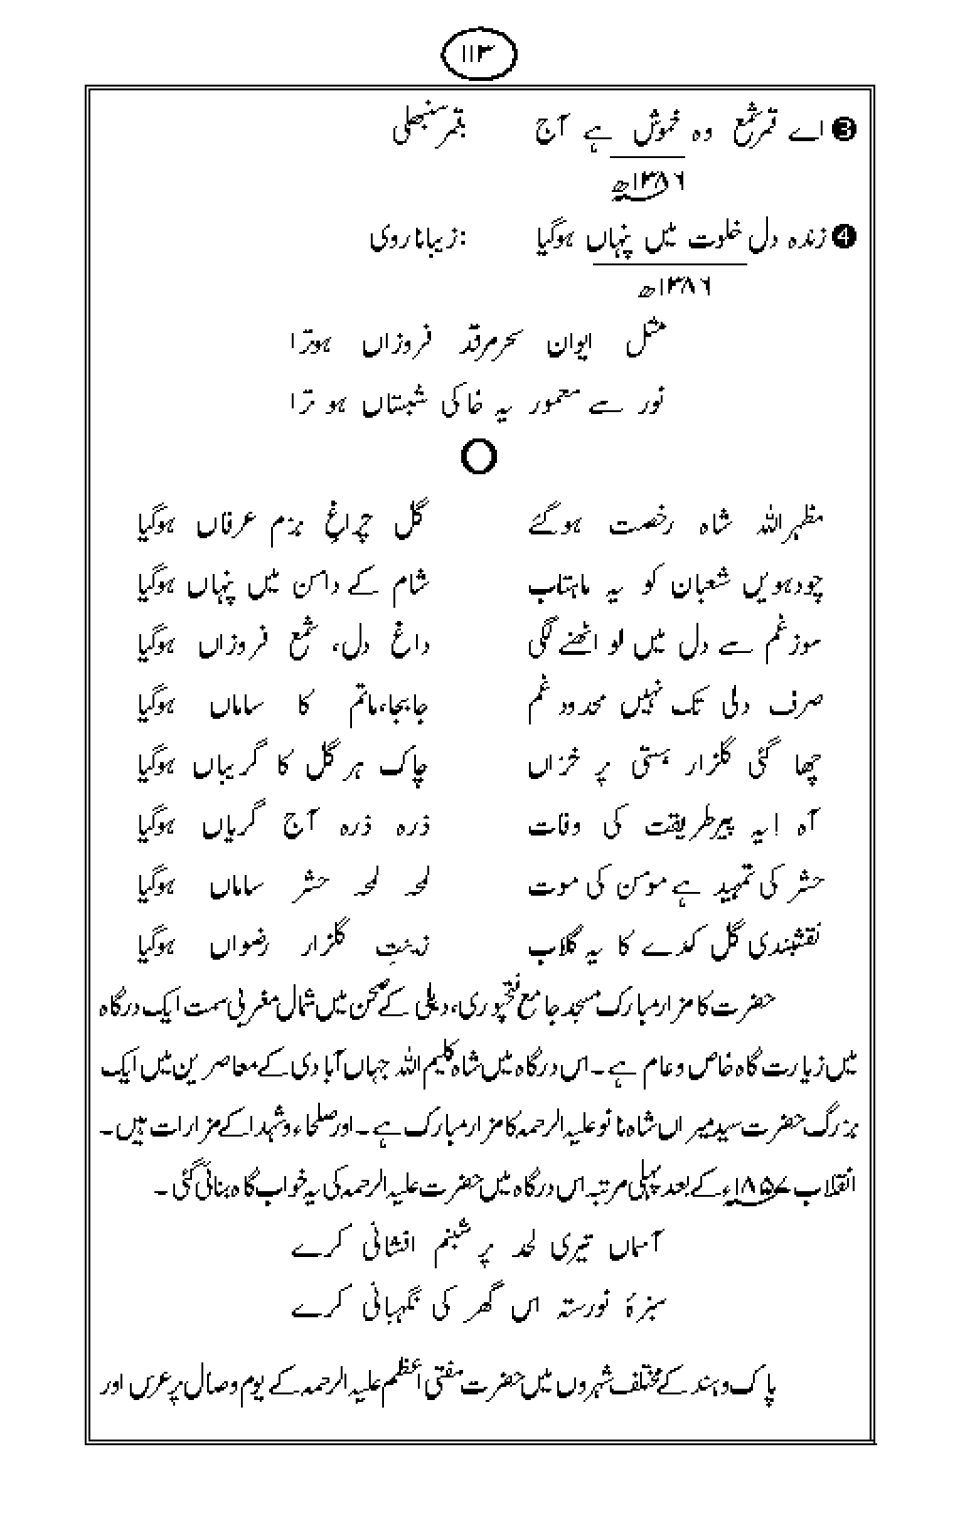 ۱۱۳
❸ اے قمر شمع وہ خموش ہے آج :قمر سنبھلی
۱۳۸۶ھ
❹ زندہ دل خلوت میں پنہاں ہوگیا :زیبا ناروی
۱۳۸۶ھ
مثل ایوان سحر مرقد فروزاں ہو ترا
نور سے معمور یہ خاکی شبستاں ہو ترا
مظہراللہ شاہ رخصت ہوگئے گل چراغِ بزم عرفاں ہوگیا
چودہویں شعبان کو یہ ماہتاب شام کے دامن میں پنہاں ہوگیا
سوز غم سے دل میں لو اٹھنے لگی داغ دل، شمع فروزاں ہوگیا
صرف دلی تک نہیں محدود غم جابجا، ماتم کا ساماں ہوگیا
چھا گئی گلزار ہستی پر خزاں چاک ہر گل کا گریباں ہوگیا
آہ ! یہ پیر طریقت کی وفات ذرہ ذرہ آج گریاں ہوگیا
حشر کی تمہید ہے مومن کی موت لمحہ لمحہ حشر ساماں ہوگیا
نقشبندی گل کدے کا یہ گلاب زینتِ گلزار رضواں ہوگیا
حضرت کا مزار مبارک مسجد جامع فتحپوری، دہلی کے صحن میں شمال مغربی سمت ایک درگاہ
میں زیارت گاہ خاص و عام ہے۔ اس درگاہ میں شاہ کلیم اللہ جہاں آبادی کے معاصرین میں ایک
بزرگ حضرت سید میراں شاہ نانو علیہ الرحمہ کا مزار مبارک ہے۔ اور صلحاء و شہدا کے مزارات ہیں۔
انقلاب ۱۸۵۷ء کے بعد پہلی مرتبہ اس درگاہ میں حضرت علیہ الرحمہ کی یہ خواب گاہ بنائی گئی ۔
آسماں تیری لحد پر شبنم افشانی کرے
سبزۂ نورستہ اس گھر کی نگہبانی کرے
پاک و ہند کے مختلف شہروں میں حضرت مفتی اعظم علیہ الرحمہ کے یوم وصال پر عرس اور